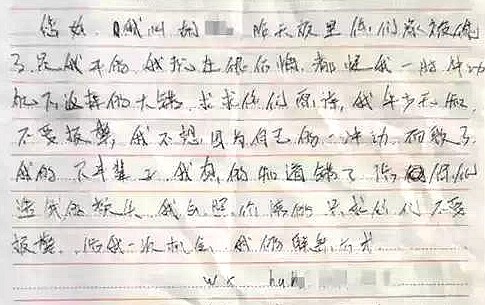 您好,我叫胡 昨天夜里你们家被偷
了是我干的,我现在很后悔,都怪我一时冲动
犯下这样的大错,求求你们原谅,我年少无知
不要报警,我不想因为自己的一时冲动而毁了
我的下半辈子,我真的知道错了,你们
造成的损失,我会照价 的 求你们不要
报警,给我一次机会,我的联系方式
wx huh